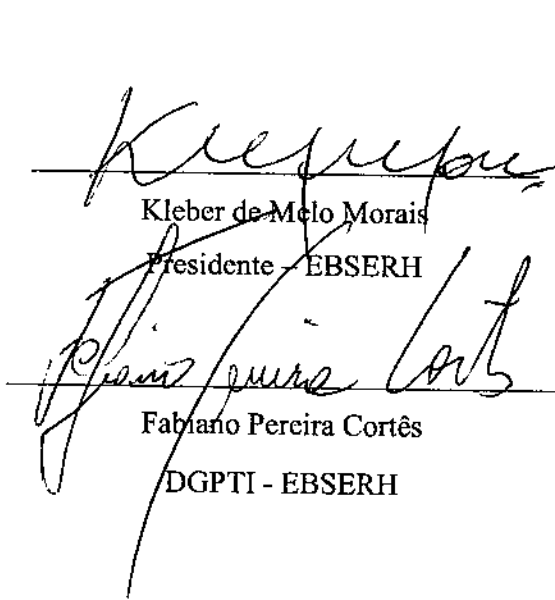 Kleber de Melo Morais
Presidente – EBSERH
Fabiano Pereira Cortês
DGPTI - EBSERH